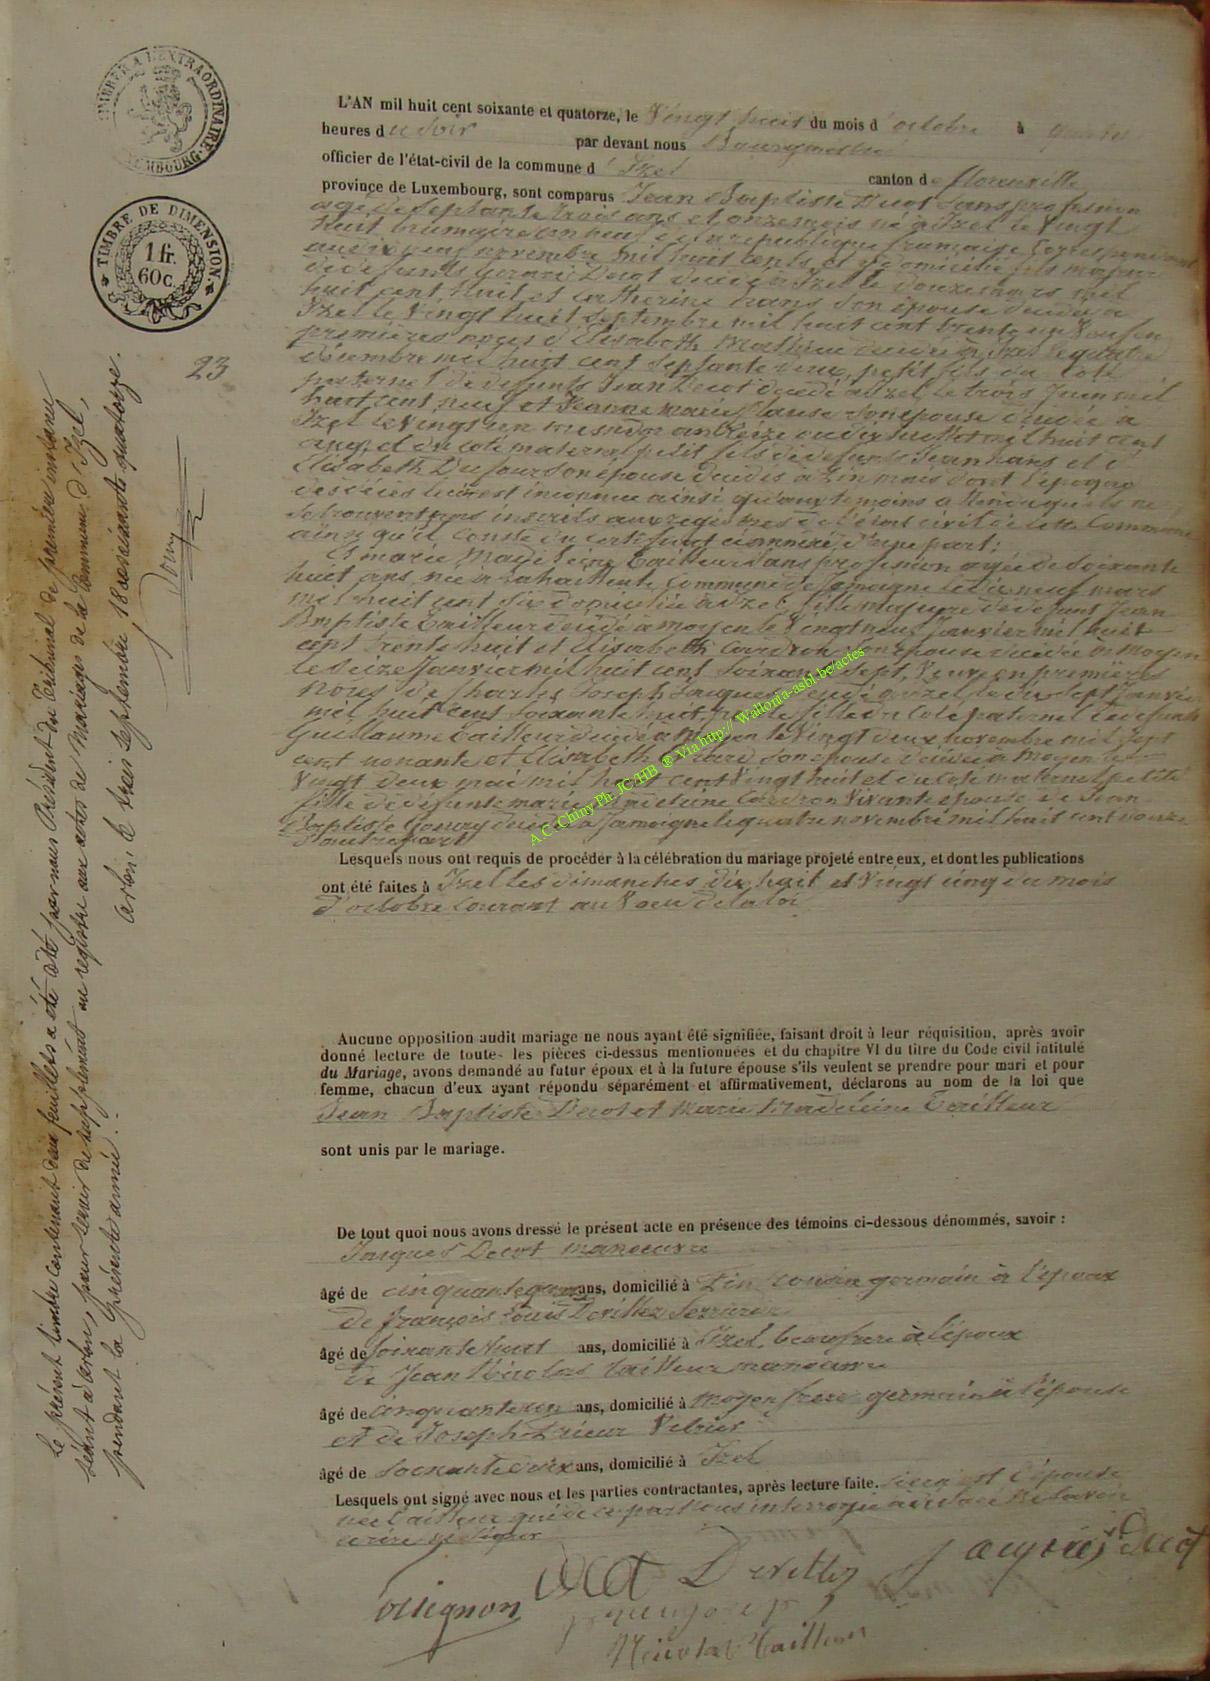 TIMBRÉ A L'EXTRAORDINAIRE.
TIMBRE DE DIMENSION
1 fr.
60 c.
23
Le présent timbre contenant deux feuilles a été coté par nous Président du Tribunal de première instance
séant à Arlon, pour servir de supplément au registre aux actes de Mariages de la Commune d'Izel,
pendant la présente année.
Arlon le trois septembre 18 soixante quatorze.
L'AN mil huit cent soixante et quatorze, le Vingt huit du mois d'octobre à
heures du soir par devant nous Bourgmestre
officier de l'état-civil de la commune d'Izel canton de florenville
province de Luxembourg, sont comparus Jean Baptiste Decot sans profession
age de septante trois ans et onze mois né à Izel le Vingt
huit brumaire an neuf de la republique francaise Correspondant
au dix neuf novembre mil huit cents, et y domicilié fils majeur
de defunts Gerard Decot decedé à Izel le douze mars mil
huit cent huit et catherine hans son épouse decedée à
Izel le Vingt huit septembre mil huit cent trente un Veuf en
premières noces d'Elisabeth Mathieu decedée à Izel le quatre
décembre mil huit cent septante deux, petit fils du coté
paternel de defunts Jean Decot decedé à Izel le trois Juin mil
huit cent neuf et Jeanne marie Clause son épouse decedée à
Izel le Vingt un messidor an treize ou dix Juillet mil huit cent
cinq et du coté maternel petit fils de defunts Jean hans et d'
Elisabeth Dufour son épouse decedés à Pin mais dont l'epoque
des décès lui est inconnue ainsi qu'aux temoins attendu qu'ils ne
se trouvent pas inscrits aux registres de l'etat civil de cette Commune
ainsi qu'il conste du certificat ci annexé, d'une part;
Et marie Madeleine Tailleur sans profession agée de soixante
huit ans, née à Commune de Jamoigne le dix neuf mars
mil huit cent six domiciliée à Izel, fille majeure de defunt Jean
Baptiste Tailleur decedé à moyen le Vingt neuf Janvier mil huit
cent trente huit et Elisabeth son épouse decedée à Moyen
le seize Janvier mil huit cent soixante sept, Veuve en premières
Noces de Charles Joseph Jacques decedé à Izel le dix sept Janvier
mil huit cent soixante huit, petite fille du coté paternel de defunts
Guillaume Tailleur decedé à Moyen le Vingt deux novembre mil sept
cent nonante et Elisabeth son épouse decedée à Moyen le
Vingt deux mai mil huit cent Vingt huit et du coté maternel petite
fille de defunte marie madeleine Vivante épouse de Jean
Baptiste decedé à Jamoigne le quatre novembre mil huit cent douze
d'autre part
Lesquels nous ont requis de procéder à la célébration du mariage projeté entre eux, et dont les publications
ont été faites à Izel les dimanches dix huit et Vingt cinq du mois
d'octobre courant au Vœu de la loi
Aucune opposition audit mariage ne nous ayant été signifiée, faisant droit à leur réquisition, après avoir
donné lecture de toute- les pièces ci-dessus mentionnées et du chapitre VI du titre du Code civil intitulé
du Mariage, avons demandé au futur époux et à la future épouse s'ils veulent se prendre pour mari et pour
femme, chacun d'eux ayant répondu séparément et affirmativement, déclarons au nom de la loi que
Jean Baptiste Decot et Marie Madeleine Tailleur
sont unis par le mariage.
De tout quoi nous avons dressé le présent acte en présence des témoins ci-dessous dénommés, savoir :
Jacques Decot manoeuvre
âgé de cinquante ans, domicilié à Pin cousin germain à l'époux
de françois Louis Devillez Serrurier
âgé de soixante huit ans, domicilié à Izel, beau frere à l'époux
de Jean Nicolas Tailleur manoeuvre
âgé de cinquante un ans, domicilié à Moyen frere germain à l'épouse
et de Joseph
âgé de soixante dix ans, domicilié à Izel
Lesquels ont signé avec nous et les parties contractantes, après lecture faite. si ce n'est l'épouse
née Tailleur qui de ce par nous interrogée a déclaré ne savoir
écrire ni signer
Decot Devillez Jacques Decot
Nicolas Tailleur
A.C. Chiny Ph. JC/HB ® Via http:// Wallonia-asbl.be/actes